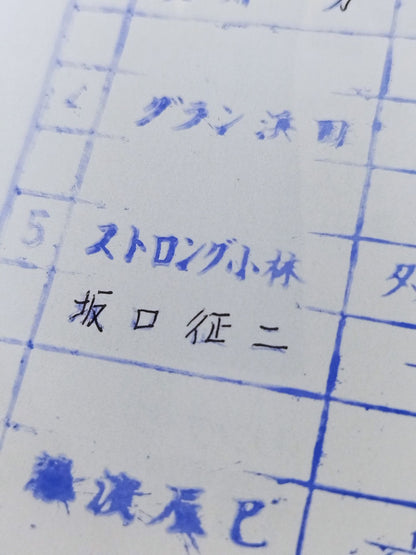 グラン浜田
5
ストロング小林
坂口征二
藤波辰巳